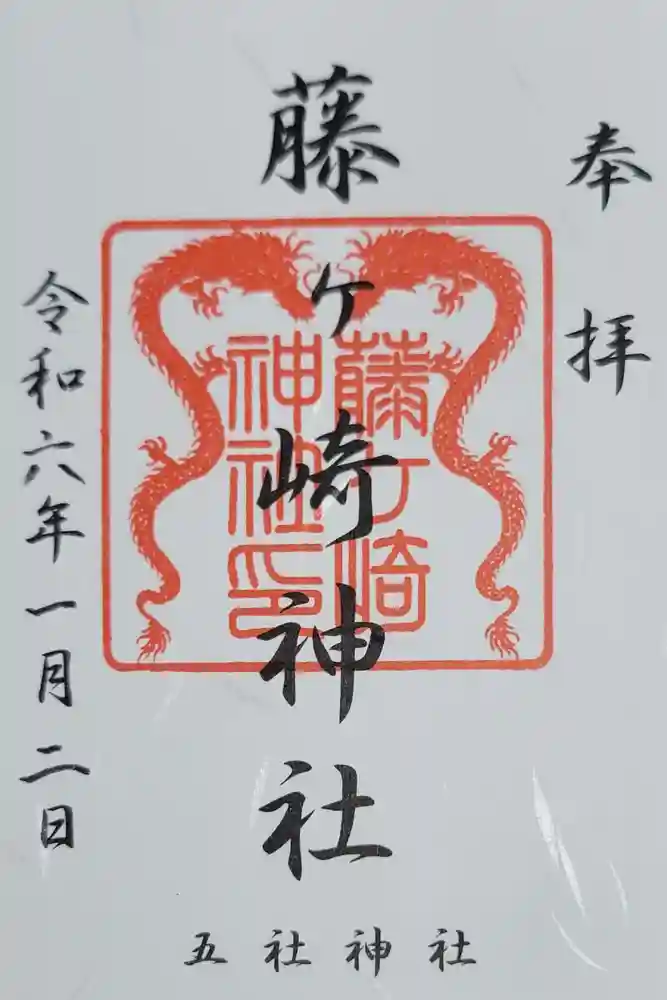 奉拝
藤ケ崎神社
藤ケ崎
神社印
令和六年一月二日
五社神社